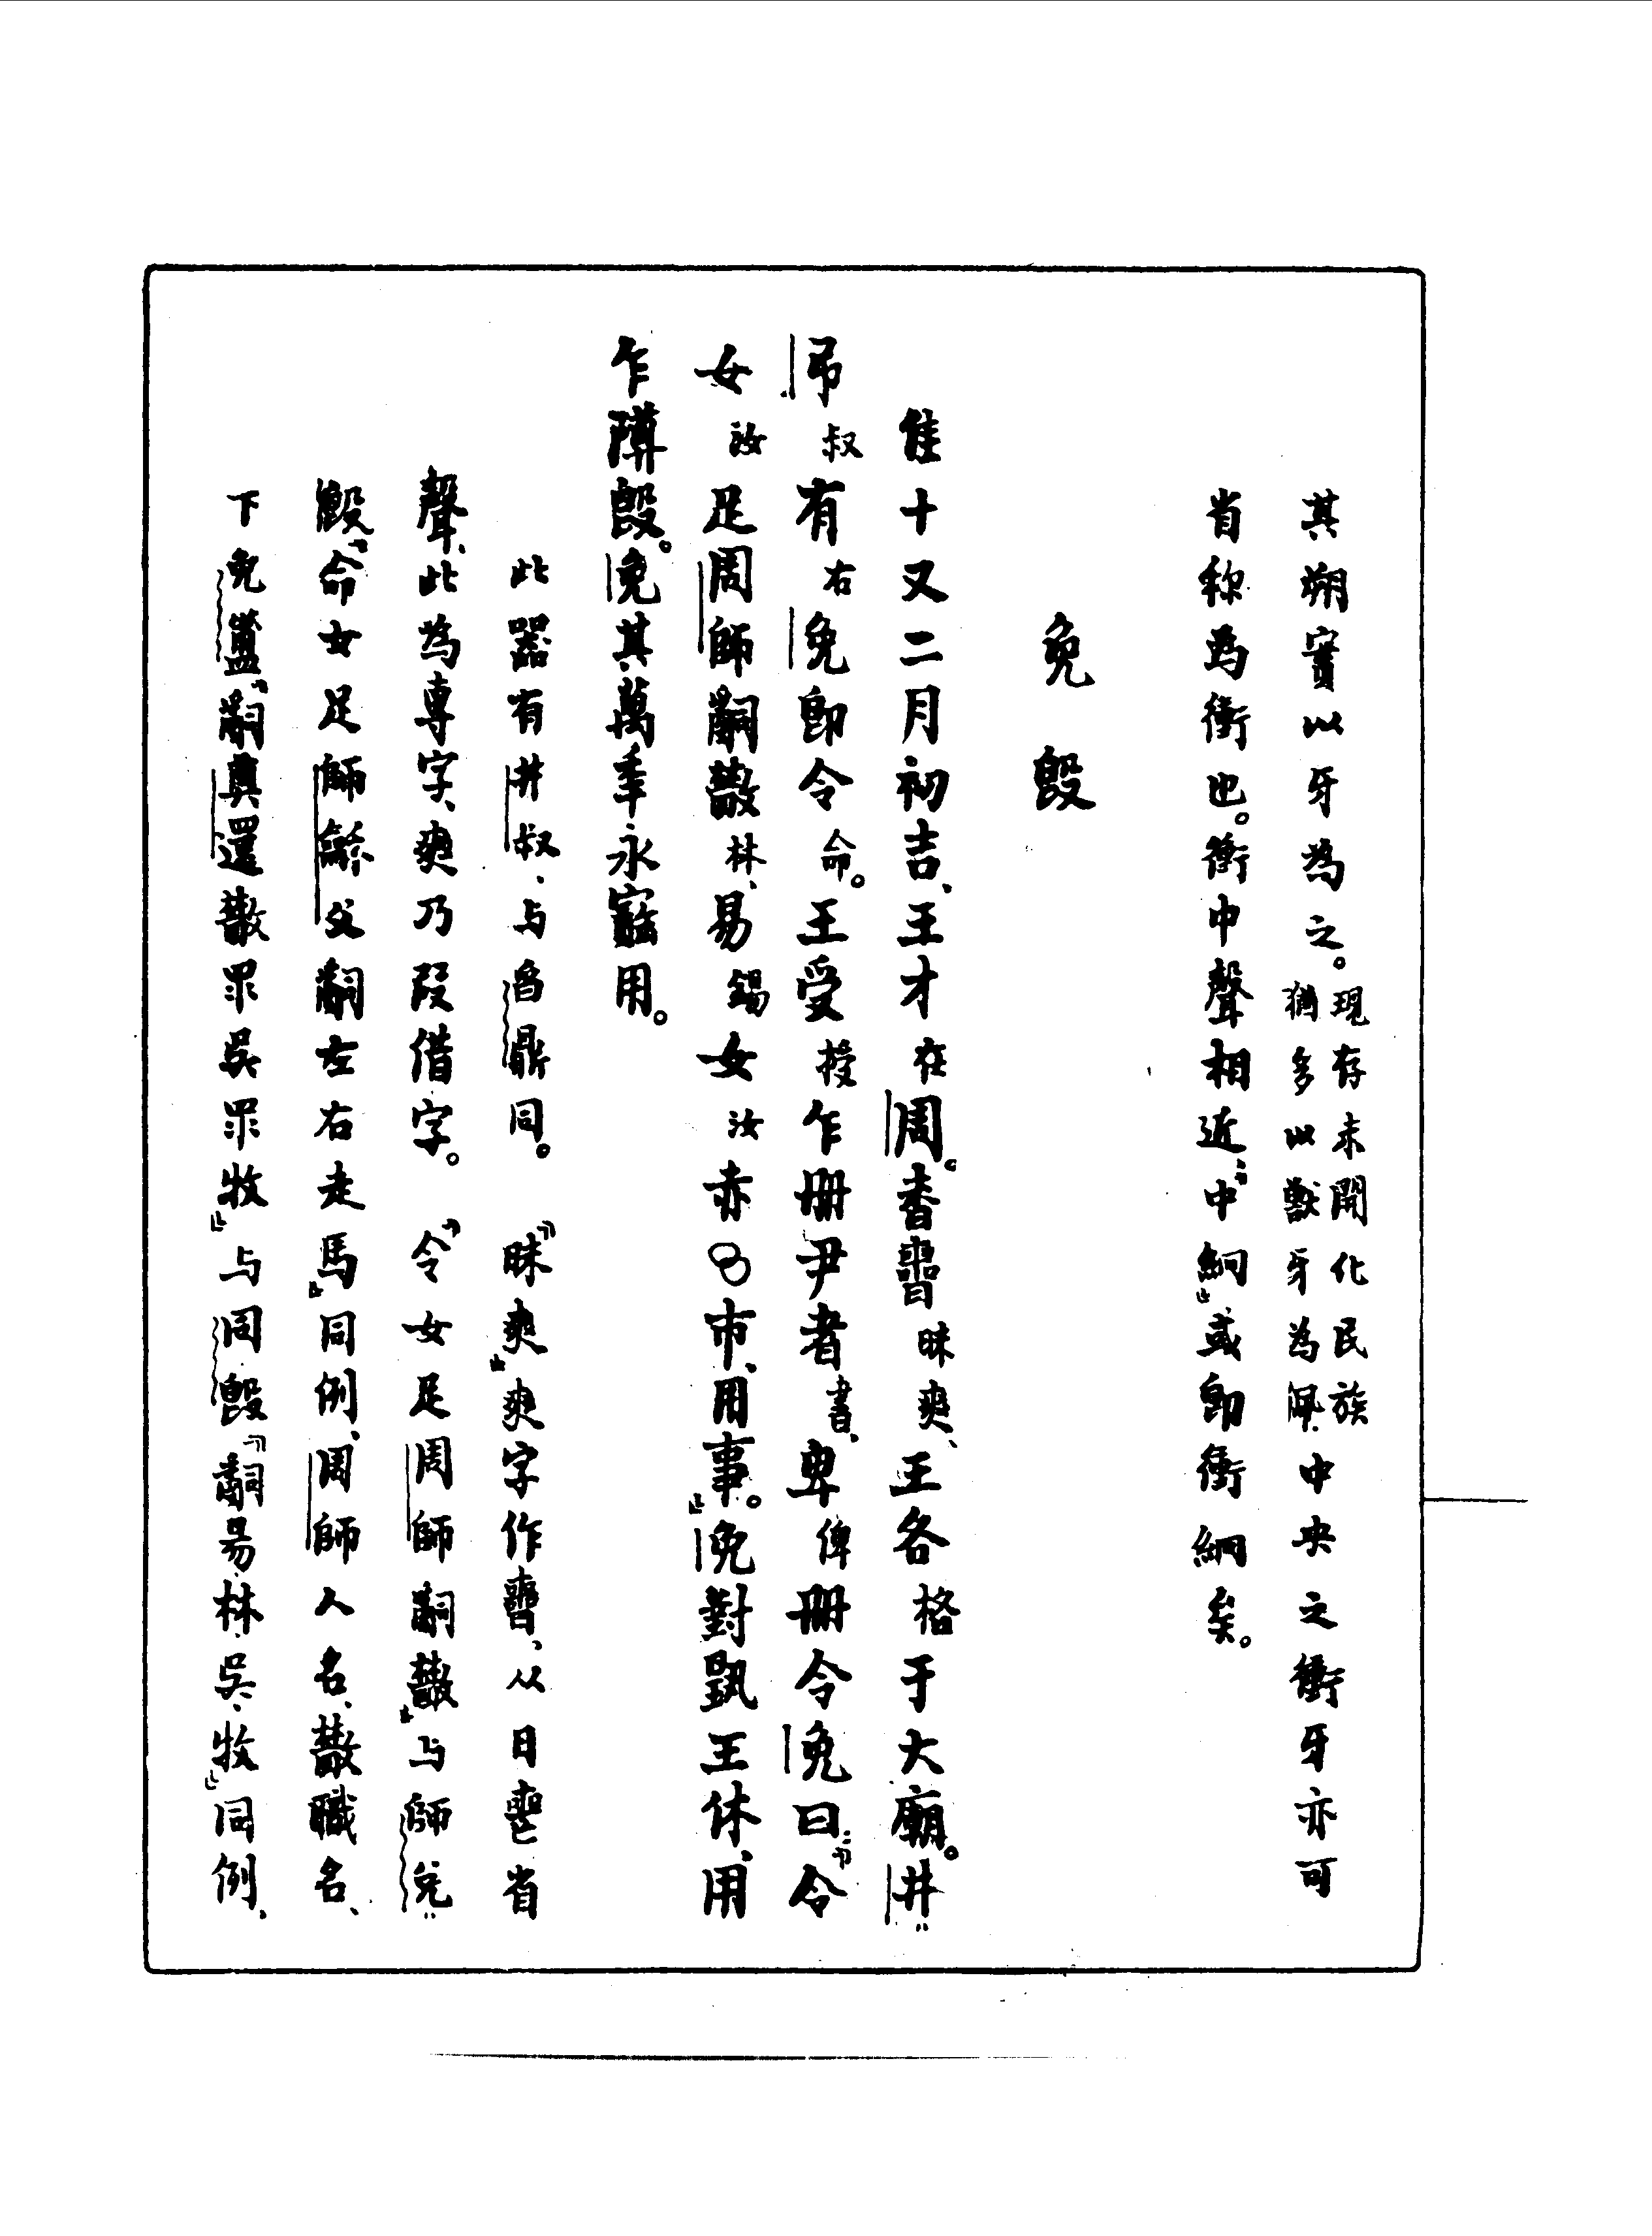 其朔實以牙為之。現存未開化民族猶多以獸牙為佩。中央之衝牙亦可
省称為衝也。衝中聲相近、「中絅」或即衝絅矣。
免𣪘
隹十又二月初吉、王才在周。昧爽、王各格于大廟。井
弔叔有右免即令命。王受授乍冊尹者書、卑俾冊令免曰：「令
女汝足周師𤔲林、易錫女汝赤市、用事。」免對𩁹王休、用
乍𨻰𣪘。免其萬年永寶用。
此器有井叔、与曶鼎同。「昧爽」爽字作、从日喪省
聲、此為專字、爽乃段借字。「令女足周師𤔲」与師兌
𣪘「命女足師龢父𤔲左右走馬」同例、周師人名、職名、
下免簠「𤔲奠還眔吳眔牧」与同𣪘「𤔲昜林吳牧」同例、